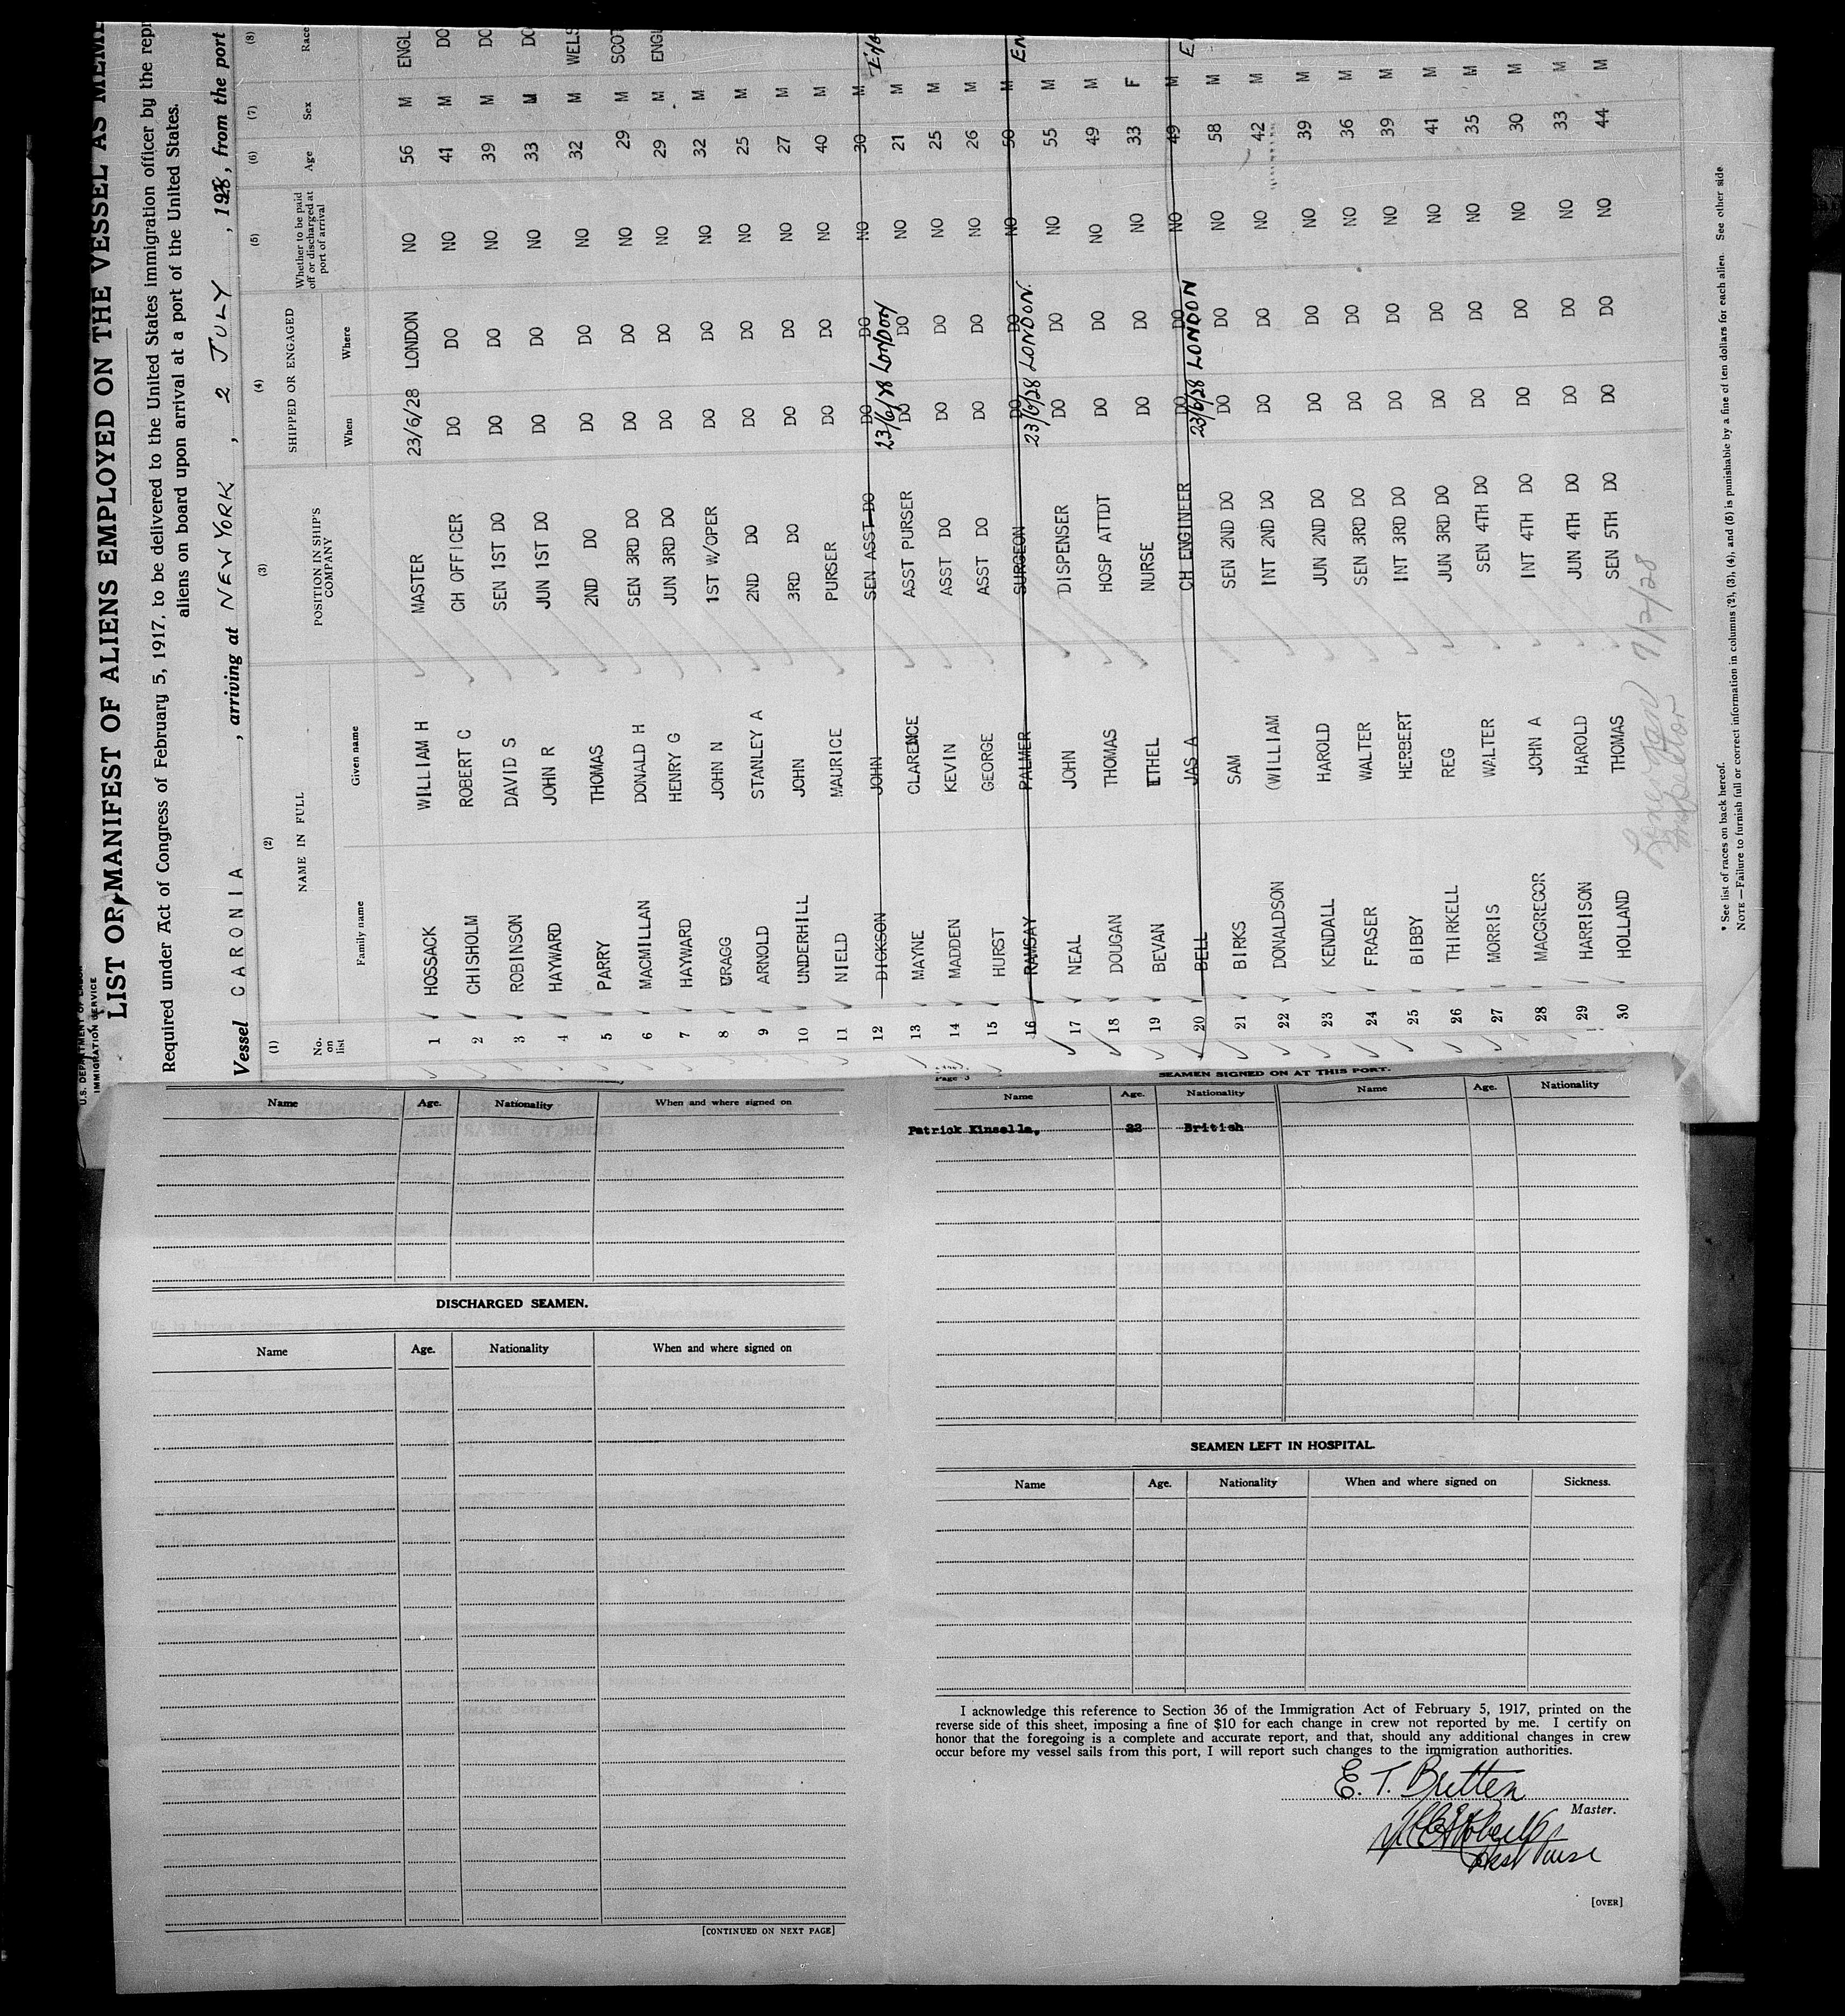 U.S. DEPARTMENT OF LABOR
IMMIGRATION SERVICE
LIST OR MANIFEST OF ALIENS EMPLOYED ON THE VESSEL AS MEM
Required under Act of Congress of February 5, 1917, to be delivered to the United States immigration officer by the rep
aliens on board upon arrival at a port of the United States.
Vessel CARONIA , arriving at NEW YORK , 2 JULY , 1928, from the port
(1) (2) (3) (4) (5) (6) (7) (8)
No. on list NAME IN FULL POSITION IN SHIP'S COMPANY SHIPPED OR ENGAGED Whether to be paid off or discharged at port of arrival Age Sex Race
Family name Given name When Where
1 HOSSACK WILLIAM H MASTER 23/6/28 LONDON NO 56 M ENGL
2 CHISHOLM ROBERT C CH OFFICER DO DO NO 41 M DO
3 ROBINSON DAVID S SEN 1ST DO DO DO NO 39 M DO
4 HAYWARD JOHN R JUN 1ST DO DO DO NO 33 M DO
5 PARRY THOMAS 2ND DO DO DO NO 32 M WELS
6 MACMILLAN DONALD H SEN 3RD DO DO DO NO 29 M SCOT
7 HAYWARD HENRY G JUN 3RD DO DO DO NO 29 M ENGL
8 CRAGG JOHN N 1ST W/OPER DO DO NO 32 M
9 ARNOLD STANLEY A 2ND DO DO DO NO 25 M
10 UNDERHILL JOHN 3RD DO DO DO NO 27 M
11 NIELD MAURICE PURSER DO DO NO 40 M
12 DICKSON JOHN SEN ASST DO DO DO NO 30 M
13 MAYNE CLARENCE ASST PURSER 23/6/28 LONDON DO DO NO 21 M
14 MADDEN KEVIN ASST DO DO DO NO 25 M
15 HURST GEORGE ASST DO DO DO NO 26 M
16 RAMSAY PALMER SURGEON DO DO NO 50 M EN
17 NEAL JOHN DISPENSER 23/6/28 LONDON. DO DO NO 55 M
18 DOUGAN THOMAS HOSP ATTDT DO DO NO 49 M
19 BEVAN ETHEL NURSE DO DO NO 33 F
20 BELL JAS A CH ENGINEER DO DO NO 49 M E
21 BIRKS SAM SEN 2ND DO 23/6/28 LONDON DO DO NO 58 M
22 DONALDSON (WILLIAM INT 2ND DO DO DO NO 42 M
23 KENDALL HAROLD JUN 2ND DO DO DO NO 39 M
24 FRASER WALTER SEN 3RD DO DO DO NO 36 M
25 BIBBY HERBERT INT 3RD DO DO DO NO 39 M
26 THIRKELL REG JUN 3RD DO DO DO NO 41 M
27 MORRIS WALTER SEN 4TH DO DO DO NO 35 M
28 MACGREGOR JOHN A INT 4TH DO DO DO NO 30 M
29 HARRISON HAROLD JUN 4TH DO DO DO NO 33 M
30 HOLLAND THOMAS SEN 5TH DO DO DO NO 44 M
7/2/28
Inspector
* See list of races on back hereof.
NOTE—Failure to furnish full or correct information in columns (2), (3), (4), and (5) is punishable by a fine of ten dollars for each alien. See other side
Name Age. Nationality When and where signed on
DISCHARGED SEAMEN.
Name Age. Nationality When and where signed on
[CONTINUED ON NEXT PAGE]
Page 3
SEAMEN SIGNED ON AT THIS PORT.
Name Age. Nationality Name Age. Nationality
Patrick Kinsella, 22 British
SEAMEN LEFT IN HOSPITAL.
Name Age. Nationality When and where signed on Sickness.
I acknowledge this reference to Section 36 of the Immigration Act of February 5, 1917, printed on the
reverse side of this sheet, imposing a fine of $10 for each change in crew not reported by me. I certify on
honor that the foregoing is a complete and accurate report, and that, should any additional changes in crew
occur before my vessel sails from this port, I will report such changes to the immigration authorities.
E. T. Britten
Master.
[OVER]